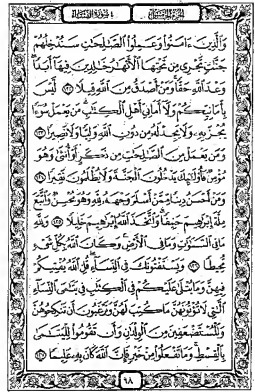 الجزء الخامس سورة النساء
وَٱلَّذِينَ ءَامَنُوا۟ وَعَمِلُوا۟ ٱلصَّٰلِحَٰتِ سَنُدْخِلُهُمْ
جَنَّٰتٍ تَجْرِى مِن تَحْتِهَا ٱلْأَنْهَٰرُ خَٰلِدِينَ فِيهَآ أَبَدًا
وَعْدَ ٱللَّهِ حَقًّا وَمَنْ أَصْدَقُ مِنَ ٱللَّهِ قِيلًا ١٢٢ لَّيْسَ
بِأَمَانِيِّكُمْ وَلَآ أَمَانِىِّ أَهْلِ ٱلْكِتَٰبِ مَن يَعْمَلْ سُوٓءًا
يُجْزَ بِهِۦ وَلَا يَجِدْ لَهُۥ مِن دُونِ ٱللَّهِ وَلِيًّا وَلَا نَصِيرًا ١٢٣
وَمَن يَعْمَلْ مِنَ ٱلصَّٰلِحَٰتِ مِن ذَكَرٍ أَوْ أُنثَىٰ وَهُوَ
مُؤْمِنٌ فَأُو۟لَٰٓئِكَ يَدْخُلُونَ ٱلْجَنَّةَ وَلَا يُظْلَمُونَ نَقِيرًا ١٢٤
وَمَنْ أَحْسَنُ دِينًا مِّمَّنْ أَسْلَمَ وَجْهَهُۥ لِلَّهِ وَهُوَ مُحْسِنٌ وَٱتَّبَعَ
مِلَّةَ إِبْرَٰهِيمَ حَنِيفًا وَٱتَّخَذَ ٱللَّهُ إِبْرَٰهِيمَ خَلِيلًا ١٢٥ وَلِلَّهِ
مَا فِى ٱلسَّمَٰوَٰتِ وَمَا فِى ٱلْأَرْضِ وَكَانَ ٱللَّهُ بِكُلِّ شَىْءٍ
مُّحِيطًا ١٢٦ وَيَسْتَفْتُونَكَ فِى ٱلنِّسَآءِ قُلِ ٱللَّهُ يُفْتِيكُمْ
فِيهِنَّ وَمَا يُتْلَىٰ عَلَيْكُمْ فِى ٱلْكِتَٰبِ فِى يَتَٰمَى ٱلنِّسَآءِ
ٱلَّٰتِى لَا تُؤْتُونَهُنَّ مَا كُتِبَ لَهُنَّ وَتَرْغَبُونَ أَن تَنكِحُوهُنَّ
وَٱلْمُسْتَضْعَفِينَ مِنَ ٱلْوِلْدَٰنِ وَأَن تَقُومُوا۟ لِلْيَتَٰمَىٰ
بِٱلْقِسْطِ وَمَا تَفْعَلُوا۟ مِنْ خَيْرٍ فَإِنَّ ٱللَّهَ كَانَ بِهِۦ عَلِيمًا ١٢٧
٩٨